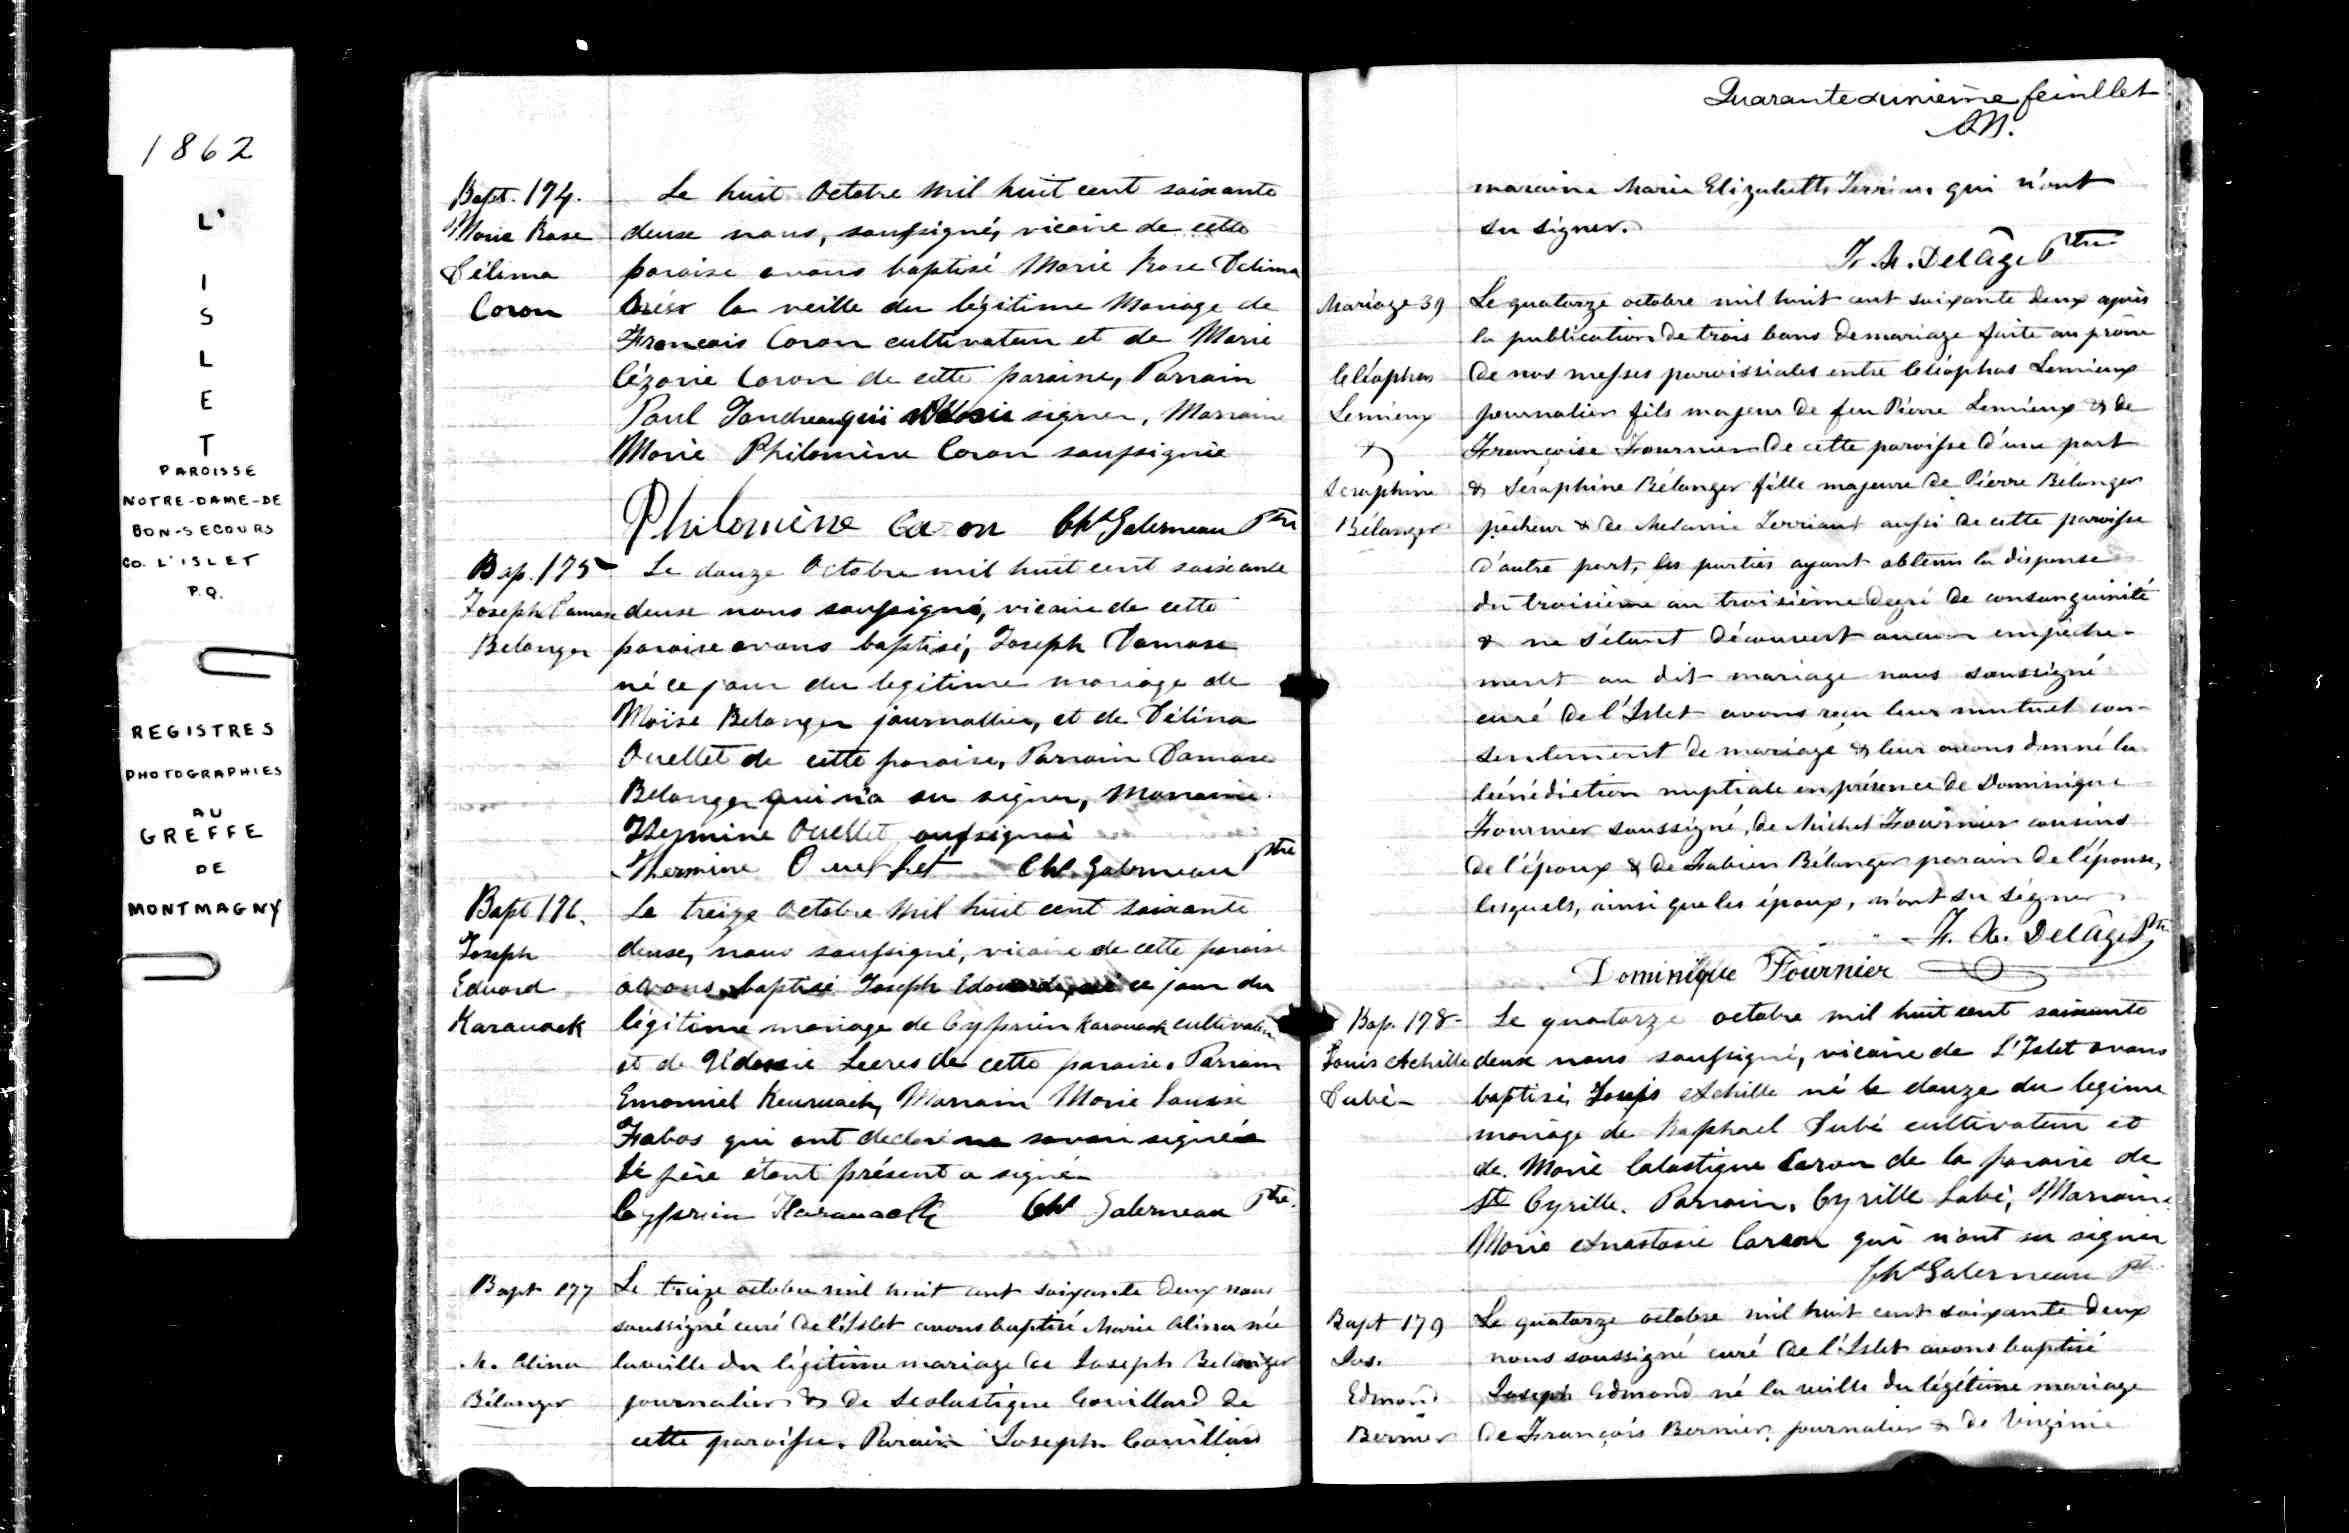 1862
L'
I
S
L
E
T
PAROISSE
NOTRE-DAME-DE
BON-SECOURS
CO. L'ISLET
P.Q.
REGISTRES
PHOTOGRAPHIES
AU
GREFFE
DE
MONTMAGNY
Bapt. 174.
Marie Rose
Délima
Caron
Le huit Octobre mil huit cent soixante
deuse nous, soussigné, vicaire de cette
paroise avons baptisé Marie Rose Délima
la veille du légitime Mariage de
Francois Caron cultivateur et de Marie
Cézarie Caron de cette paroise, Parrain
Paul qui signer, Marraine
Marie Philomène Caron soussignée
Philomène Caron Chs Galerneau Ptre
Bap. 175
Joseph Damase
Belanger
Le douze Octobre mil huit cent soixante
deuse nous soussigné, vicaire de cette
paroise avons baptisé, Joseph Damase
né ce jour du legitime mariage de
Moïse Belanger journallier, et de Délina
Ouellet de cette paroise, Parrain Damase
Belanger qui n'a su signer, Marraine
Hermine Ouellet
Hermine Ouellet Chs Galerneau Ptre
Bapt 176.
Joseph
Edouard
Karauack
Le treize Octobre mil huit cent soixante
deuse, nous soussigné, vicaire de cette paroise
avons baptisé Joseph Edouard, né ce jour du
légitime mariage de Cyprien Karauack cultivateur
et de de cette paroise. Parrain
Emanuel Marraine Marie
qui ont declaré ne savoir signer
le père étant présent a signé
Cyprien Karauack Chs Galerneau Ptre.
Bapt 177
M. Alina
Bélanger
Le treize octobre mil huit cent soixante deux nous
soussigné curé de l'Islet avons baptisé Marie Alina née
la veille du légitime mariage de Joseph Belanger
journalier & de Scolastique Couillard de
cette paroisse. Parain Joseph Couillard
Quarante & unième feuillet
maraine Marie Elizabeth qui n'ont
su signer.
F. X. Delâge Ptre
Mariage 39
Cléophas
Lemieux
&
Séraphine
Bélanger
Le quatorze octobre mil huit cent soixante deux après
la publication de trois bans de mariage faite au prône
de nos messes paroissiales entre Cléophas Lemieux
journalier fils majeur de feu Pierre Lemieux & de
Françoise Fournier de cette paroisse d'une part
& Séraphine Bélanger fille majeure de Pierre Bélanger
pêcheur & de Melanie Terriault aussi de cette paroisse
d'autre part, les parties ayant obtenu la dispense
du troisième au troisième degré de consanguinité
& ne s'étant découvert aucun empêche-
ment au dit mariage nous soussigné
curé de l'Islet avons reçu leur mutuel con-
sentement de mariage & leur avons donné la
bénédiction nuptiale en présence de Dominique
Fournier soussigné, de Michel Fournier cousins
de l'époux & de Fabien Bélanger parain de l'épouse,
lesquels, ainsi que les époux, n'ont su signer
F. X. Delâge Ptre
Dominique Fournier
Bap. 178
Louis Achille
Dubé
Le quatorze octobre mil huit cent soixante
deux nous soussigné, vicaire de L'Islet avons
baptisé, Louis Achille né le douze du legime
mariage de Raphael Dubé cultivateur et
de Marie Caron de la paroise de
St Cyrille. Parrain, Cyrille Marraine
Marie Anastasie Caron qui n'ont su signer
Chs Galerneau Ptre
Bapt 179
Jos.
Edmond
Bernier
Le quatorze octobre mil huit cent soixante deux
nous soussigné curé de l'Islet avons baptisé
Joseph Edmond né la veille du légitime mariage
de François Bernier, journalier & de Virginie